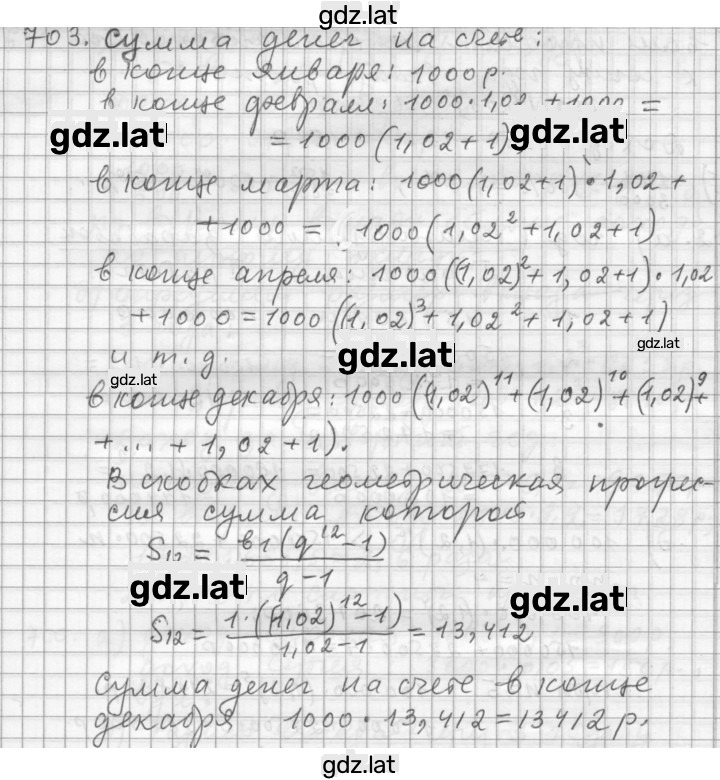 gdz.lat
703. Сумма денег на счете:
в конце января: 1000 р.
в конце февраля: 1000·1,02 +1000 =
= 1000 (1,02+1)
gdz.lat
gdz.lat
в конце марта: 1000(1,02+1)·1,02 +
+1000 = 1000(1,02²+1,02+1)
в конце апреля: 1000((1,02)²+1,02+1)·1,02
+1000=1000((1,02)³+1,02²+1,02+1)
gdz.lat
и т.д.
gdz.lat
gdz.lat
в конце декабря: 1000((1,02)¹¹+(1,02)¹⁰+(1,02)⁹+
+...+1,02+1).
В скобках геометрическая прогрес-
сия сумма которой
S₁₂ = b₁(q¹²-1)
q-1
gdz.lat
gdz.lat
S₁₂ = 1·((1,02)¹²-1) = 13,412
1,02-1
Сумма денег на счете в конце
декабря 1000·13,412=13412 р.
gdz.lat